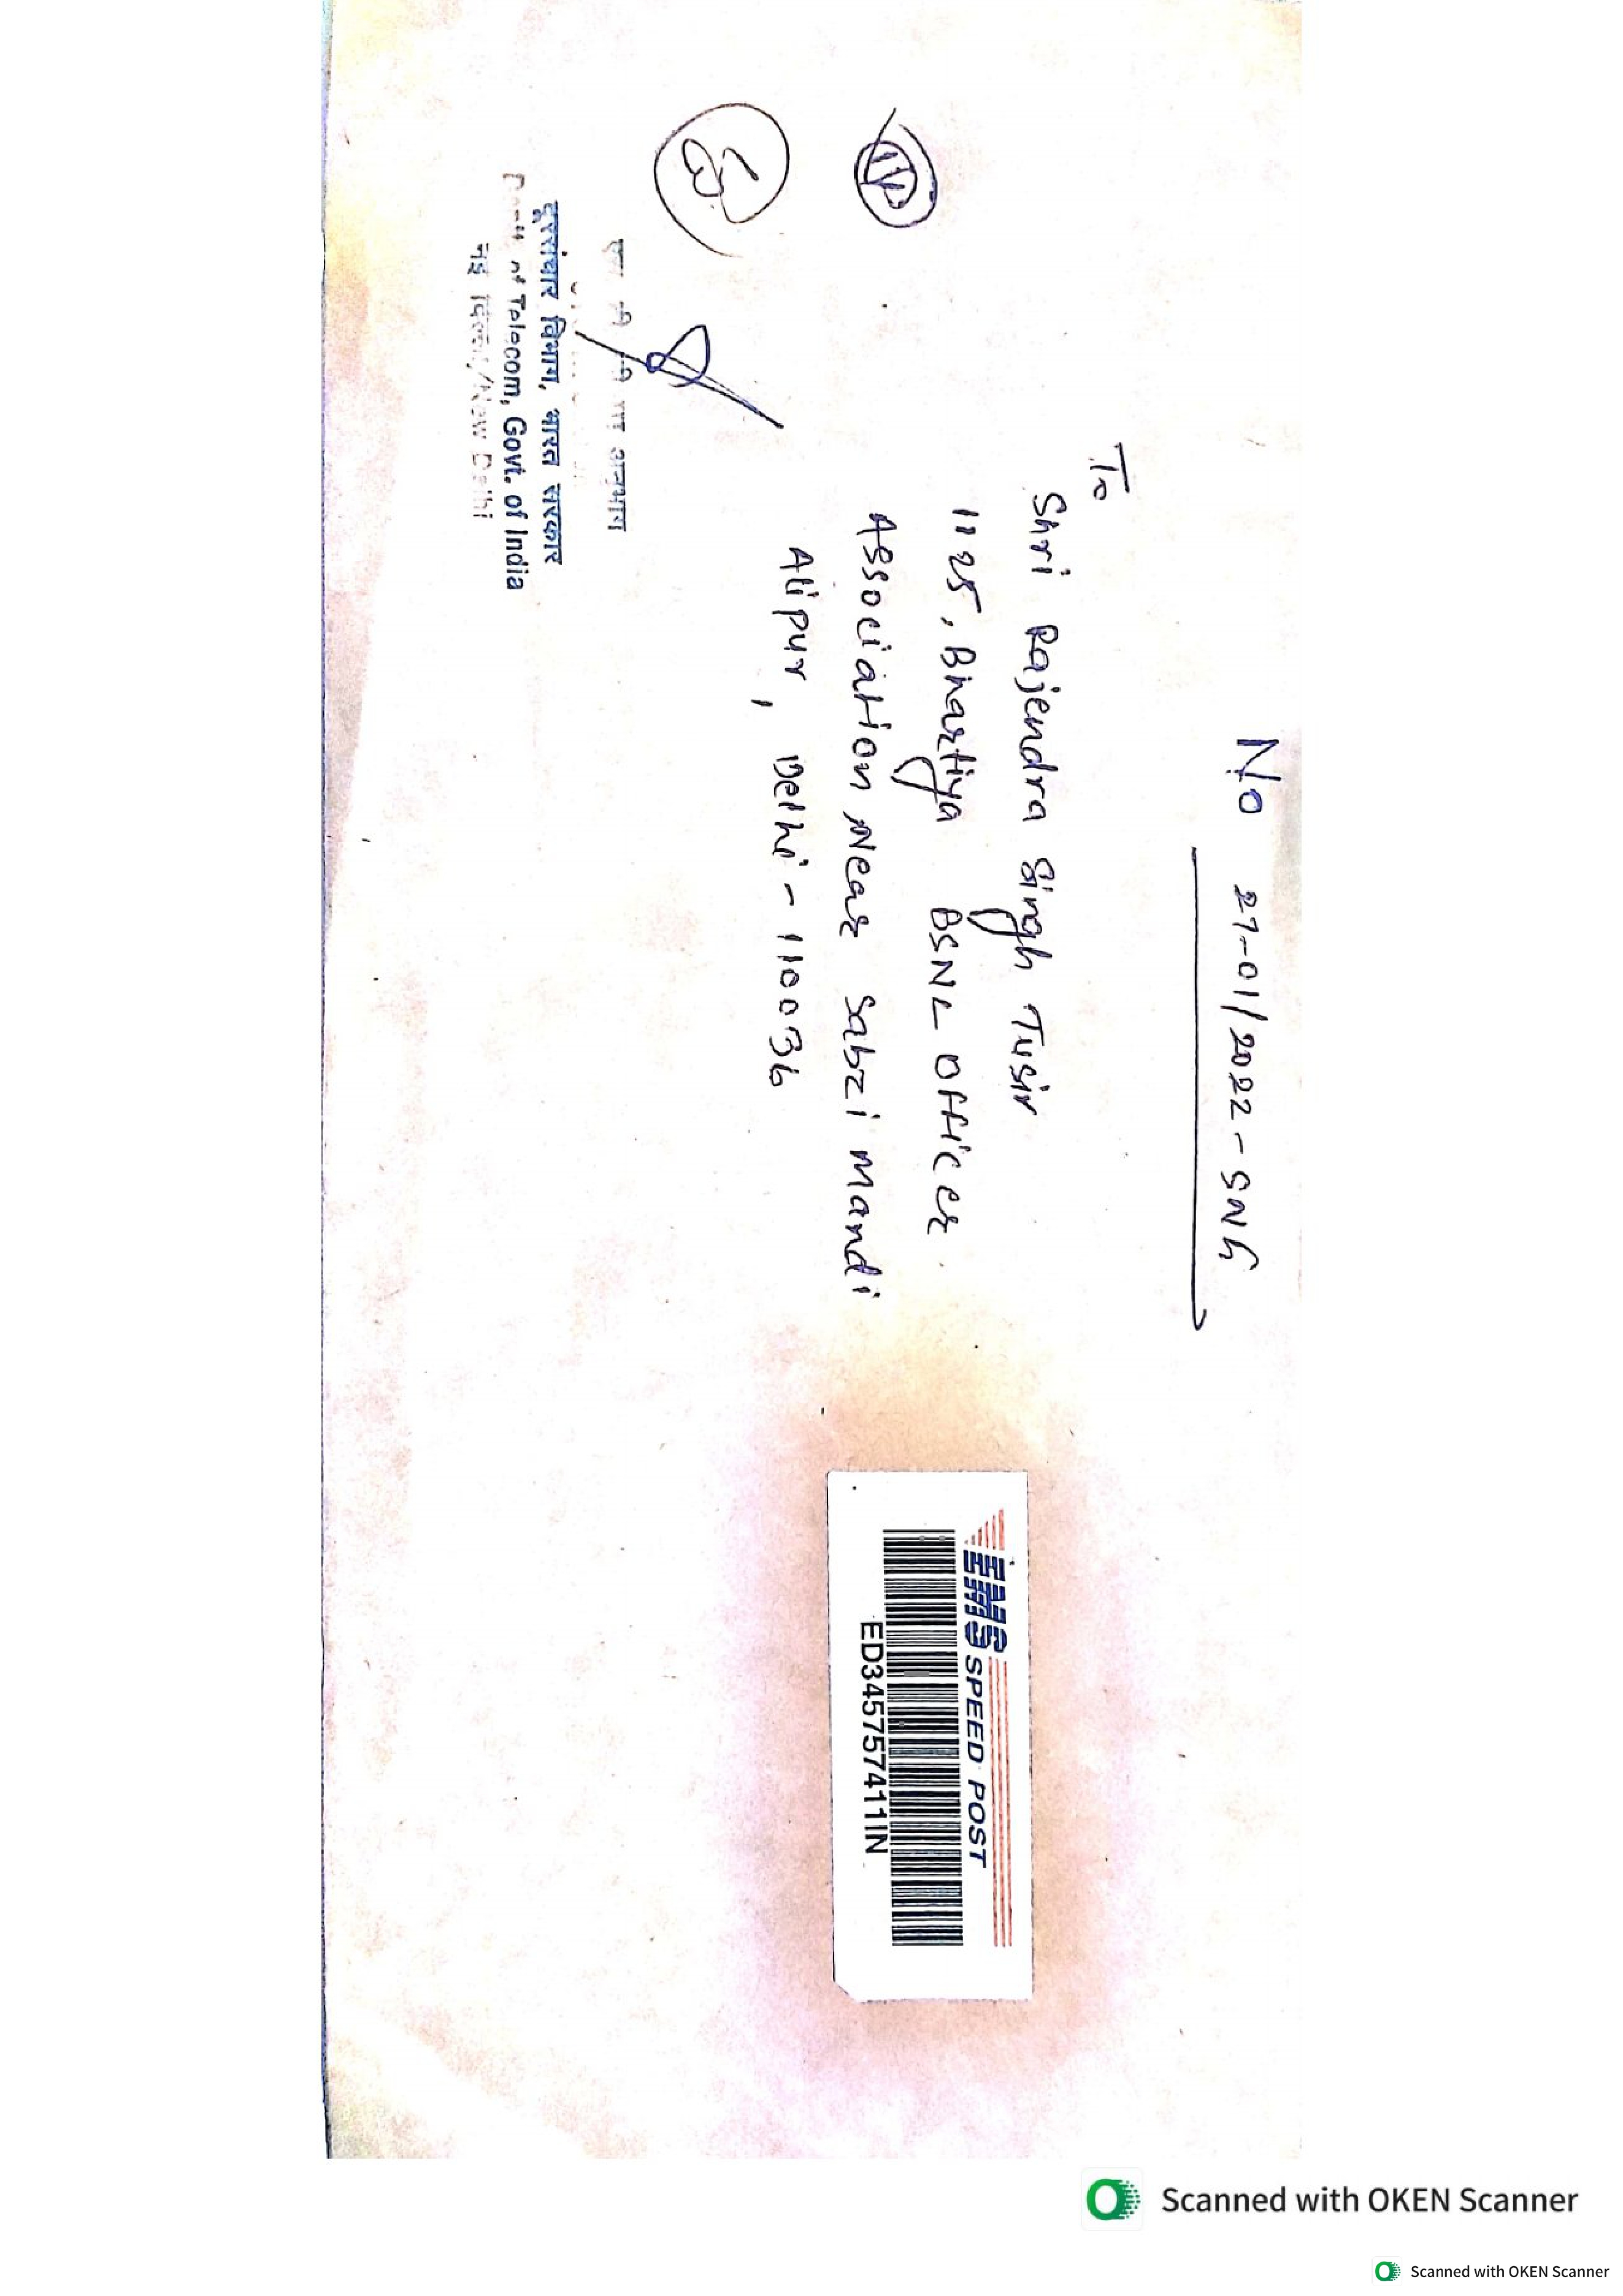 No 27-01/2022-SNG
To
Shri Rajendra Singh Tusir
1125, Bhartiya BSNL Officer
Association Near Sabzi Mandi
Alipur, Delhi - 110036
अनुभाग
दूरसंचार विभाग, भारत सरकार
of Telecom, Govt. of India
नई दिल्ली/New Delhi
EMS SPEED POST
ED345757411IN
Scanned with OKEN Scanner
Scanned with OKEN Scanner